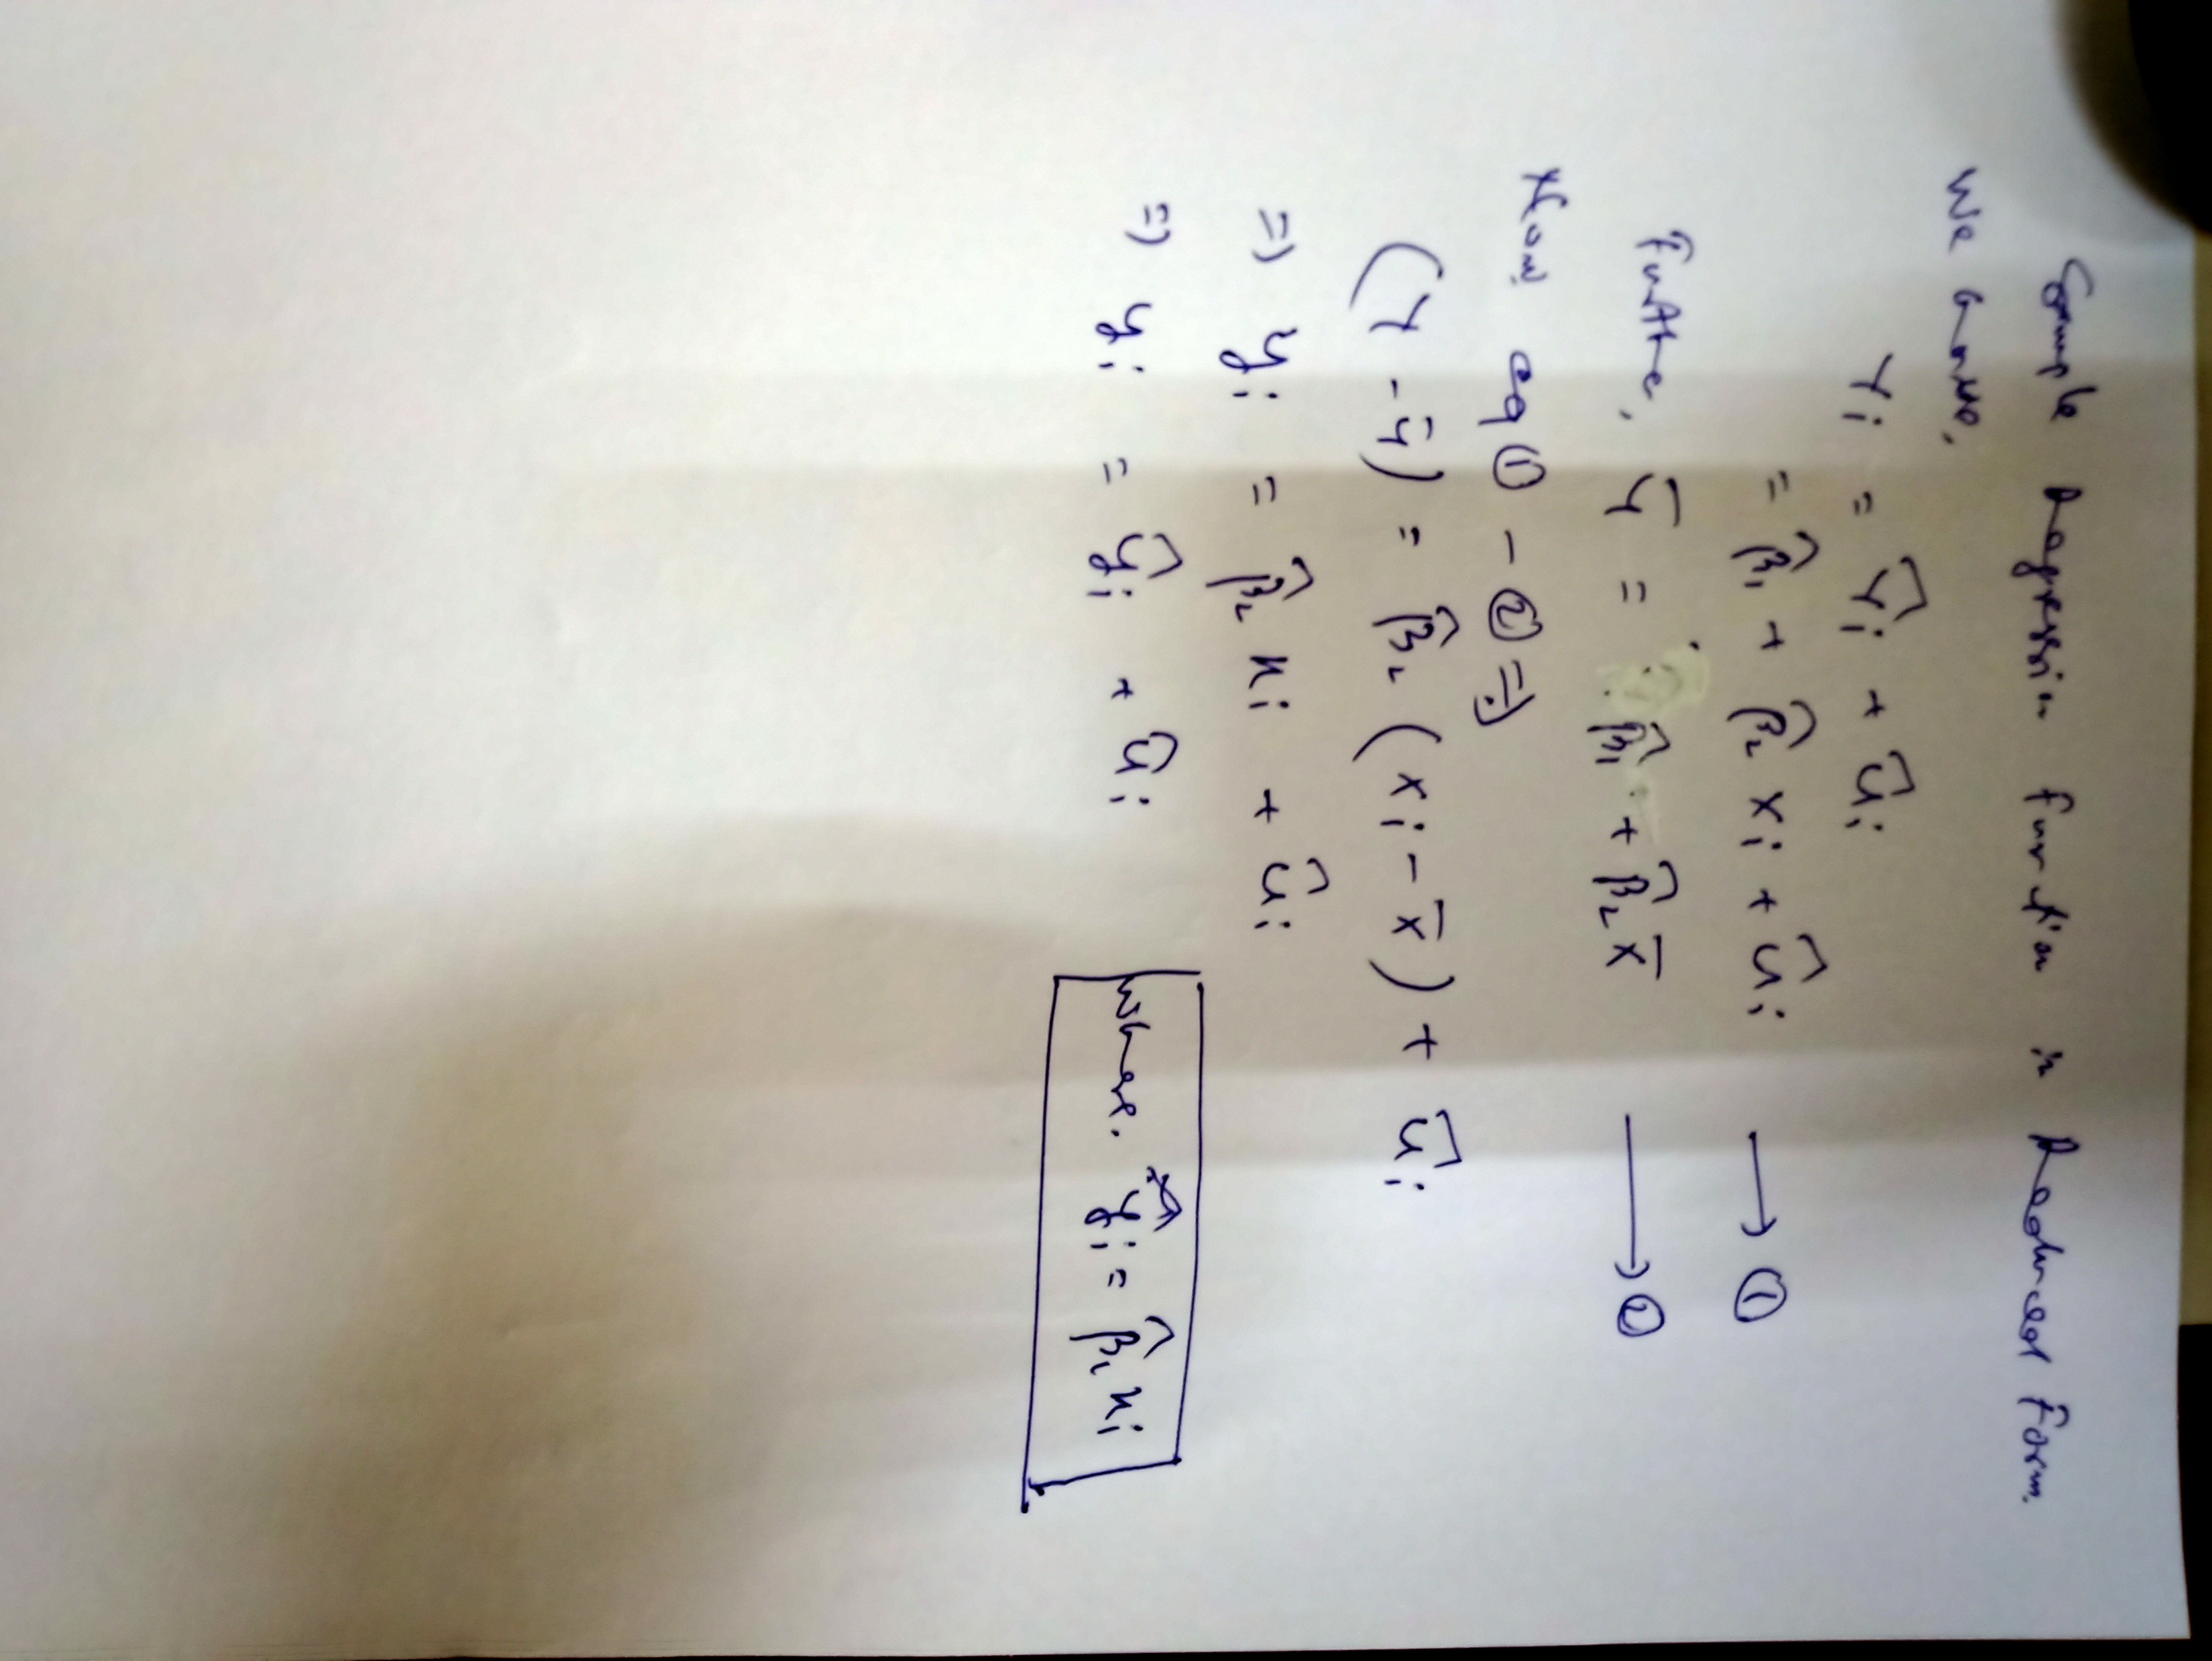 Sample Regression function in Reduced Form.
We know,
Yi = Ŷi + ûi
= β̂1 + β̂2 Xi + ûi → ①
Further, Ȳ = β̂1 + β̂2 X̄ → ②
Now eq ① - ② ⇒
(Y - Ȳ) = β̂2 (Xi - X̄) + ûi
⇒ yi = β̂2 xi + ûi
⇒ yi = ŷi + ûi
Where. ŷi = β̂2 xi